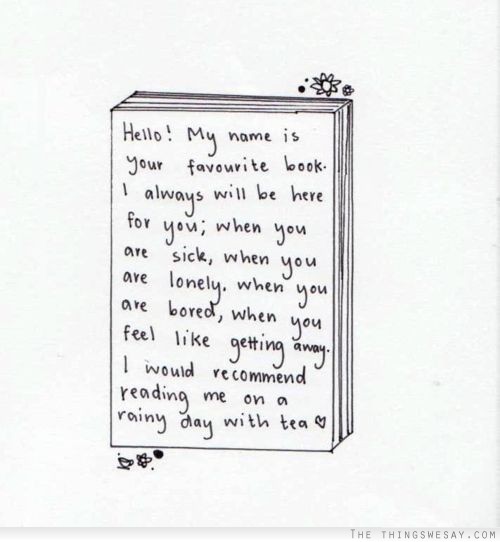 Hello! My name is
your favourite book.
I always will be here
for you; when you
are sick, when you
are lonely. when you
are bored, when you
feel like getting away.
I would recommend
reading me on a
rainy day with tea ♡
THE THINGSWESAY.COM